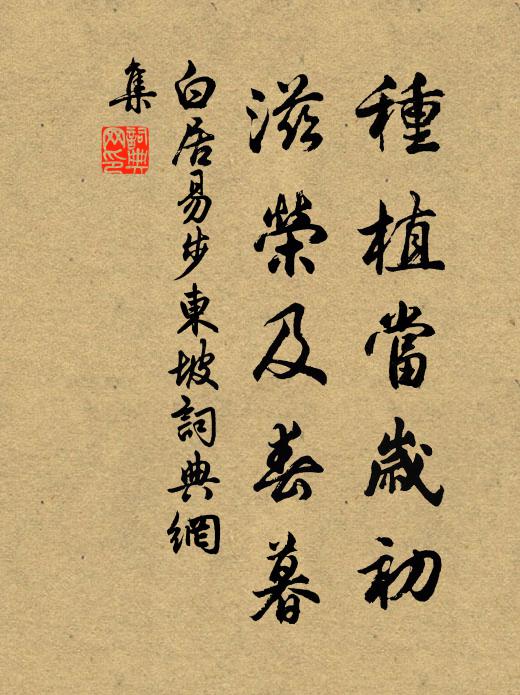 種植當歲初
滋榮及春暮
白居易步東坡詞典網
集
詞典
网印